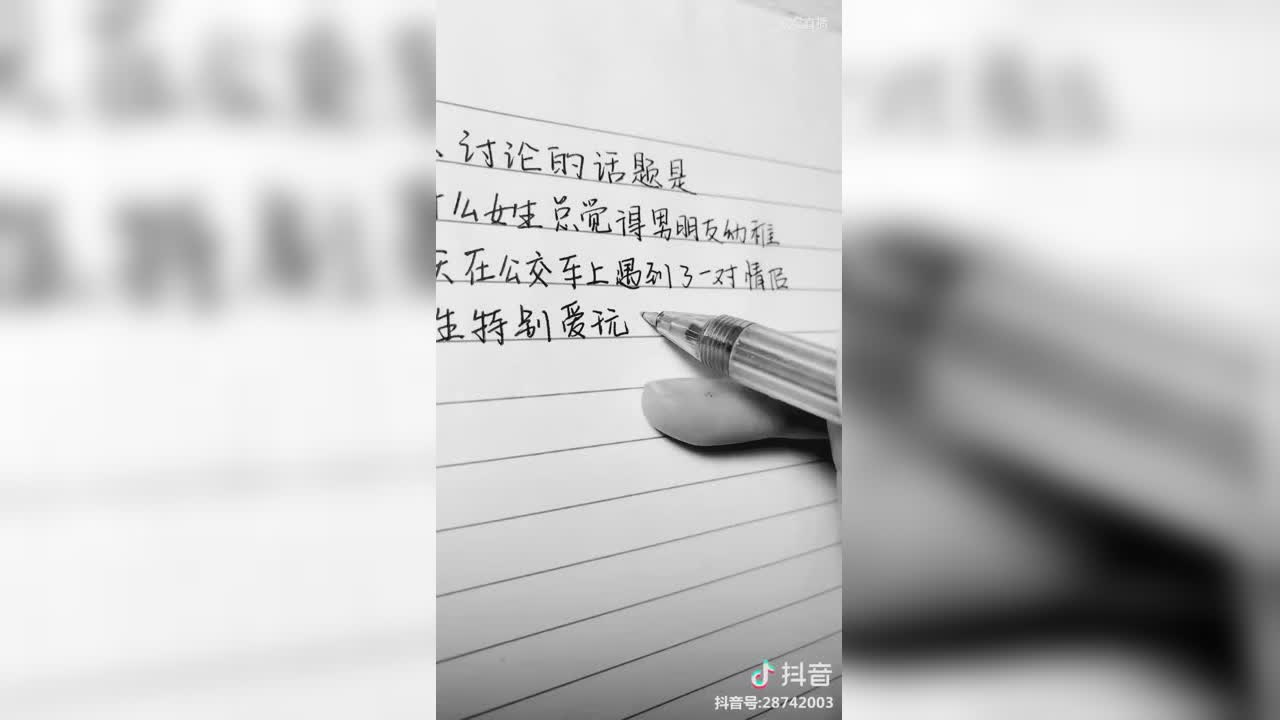 、讨论的话题是
什么女生总觉得男朋友幼稚
天在公交车上遇到了一对情侣
生特别爱玩
抖音
抖音号:28742003